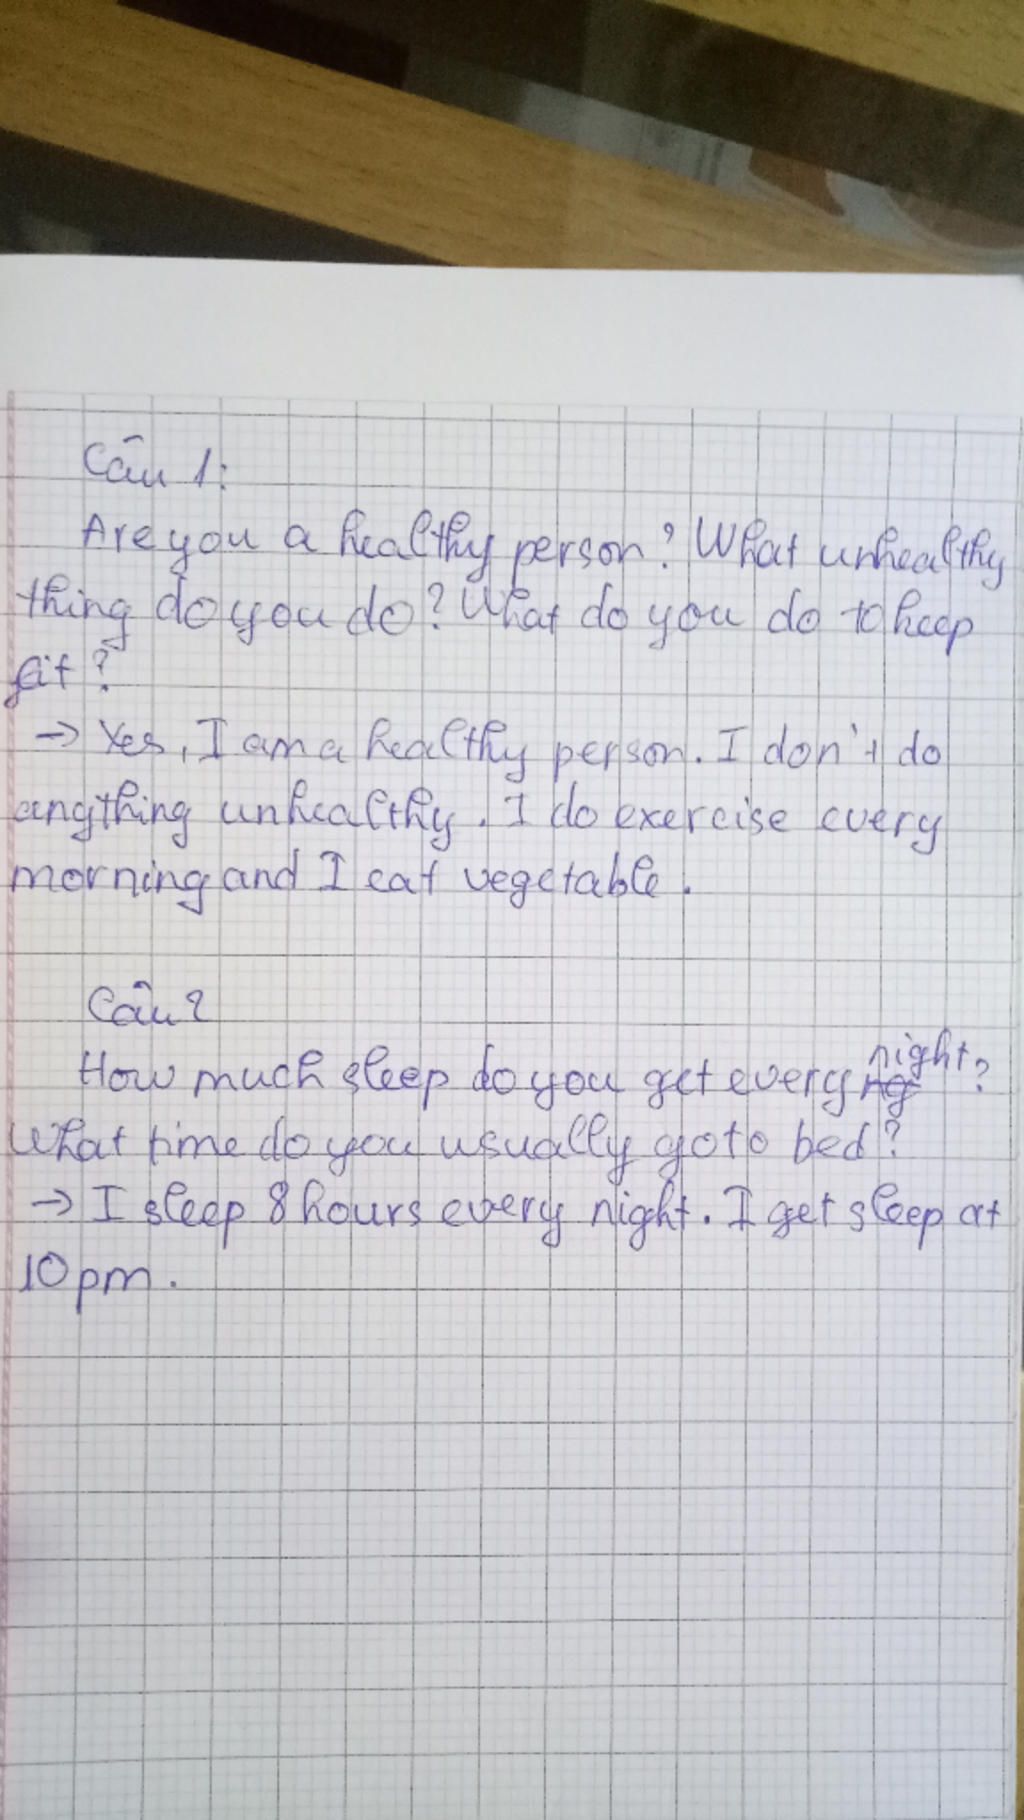 Câu 1:
Are you a healthy person? What unhealthy
thing do you do? What do you do to keep
fit?
→ Yes, I am a healthy person. I don't do
anything unhealthy. I do exercise every
morning and I eat vegetable.
Câu 2
How much sleep do you get every night?
What time do you usually go to bed?
→ I sleep 8 hours every night. I get sleep at
10 pm.